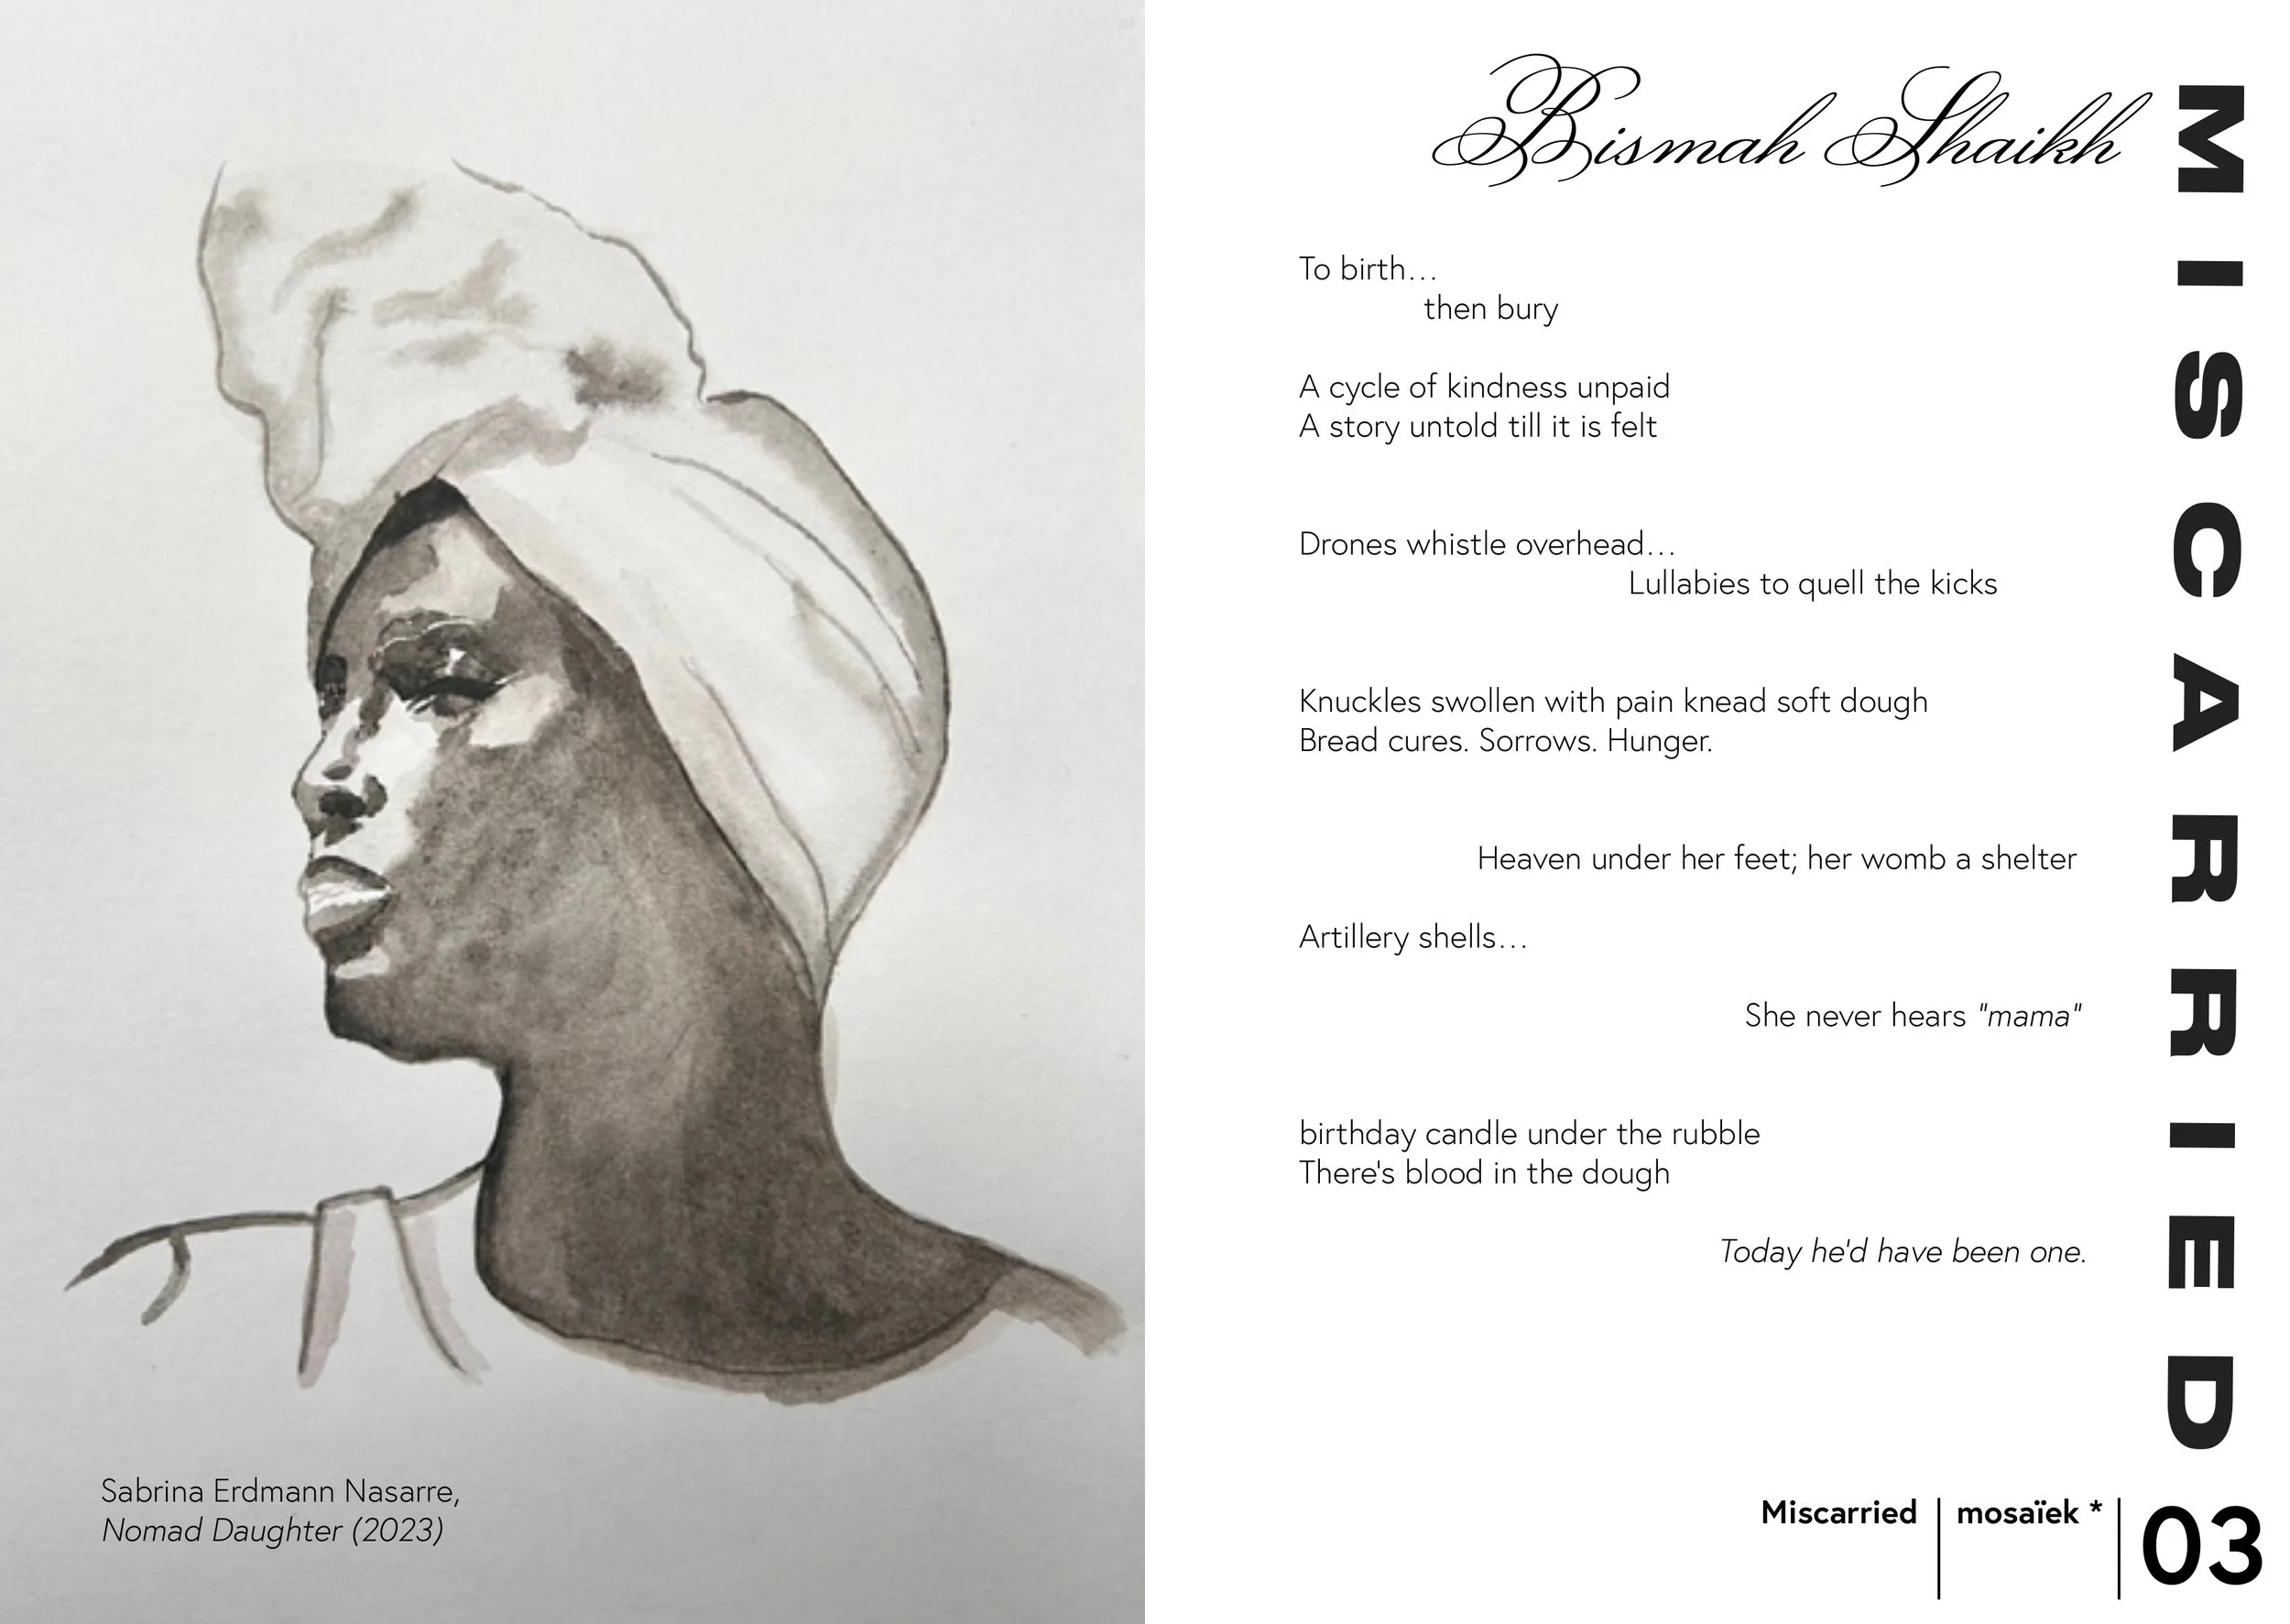 Sabrina Erdmann Nasarre,
Nomad Daughter (2023)
Bismah Shaikh
MISCARRIED
To birth…
then bury
A cycle of kindness unpaid
A story untold till it is felt
Drones whistle overhead…
Lullabies to quell the kicks
Knuckles swollen with pain knead soft dough
Bread cures. Sorrows. Hunger.
Heaven under her feet; her womb a shelter
Artillery shells…
She never hears "mama"
birthday candle under the rubble
There's blood in the dough
Today he'd have been one.
Miscarried | mosaïek * | 03